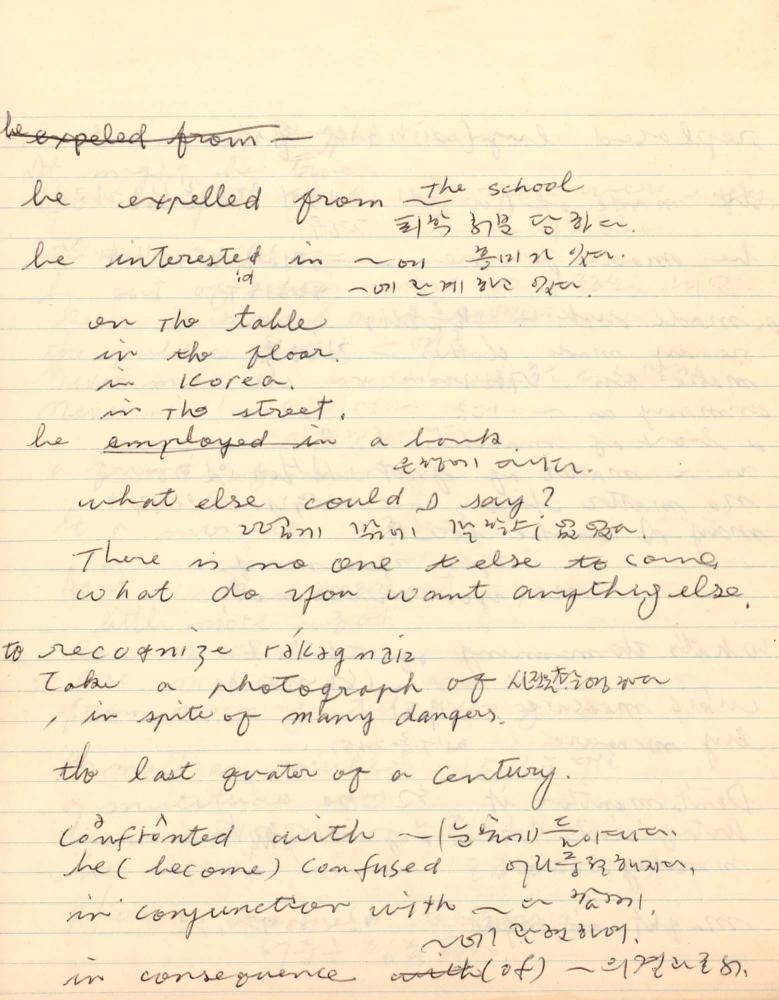 be expeled from —
be expelled from the school
퇴학 처분 당하다.
be interested in ~에 흥미가 있다.
id ~에 관계하고 있다.
on the table
in the floor.
in Korea.
in the street.
be employed in a bank
은행에 다니다.
what else could I say?
There is no one else to come,
what do you want anything else.
to recognize rékəgnàiz
Take a photograph of
, in spite of many dangers.
the last quater of a century.
confronted with ~(눈앞에)
be (become) confused 어리둥절해지다,
in conjunction with ~와 함께,
~에 관련하여.
in consequence with (of) ~의 결과로서,